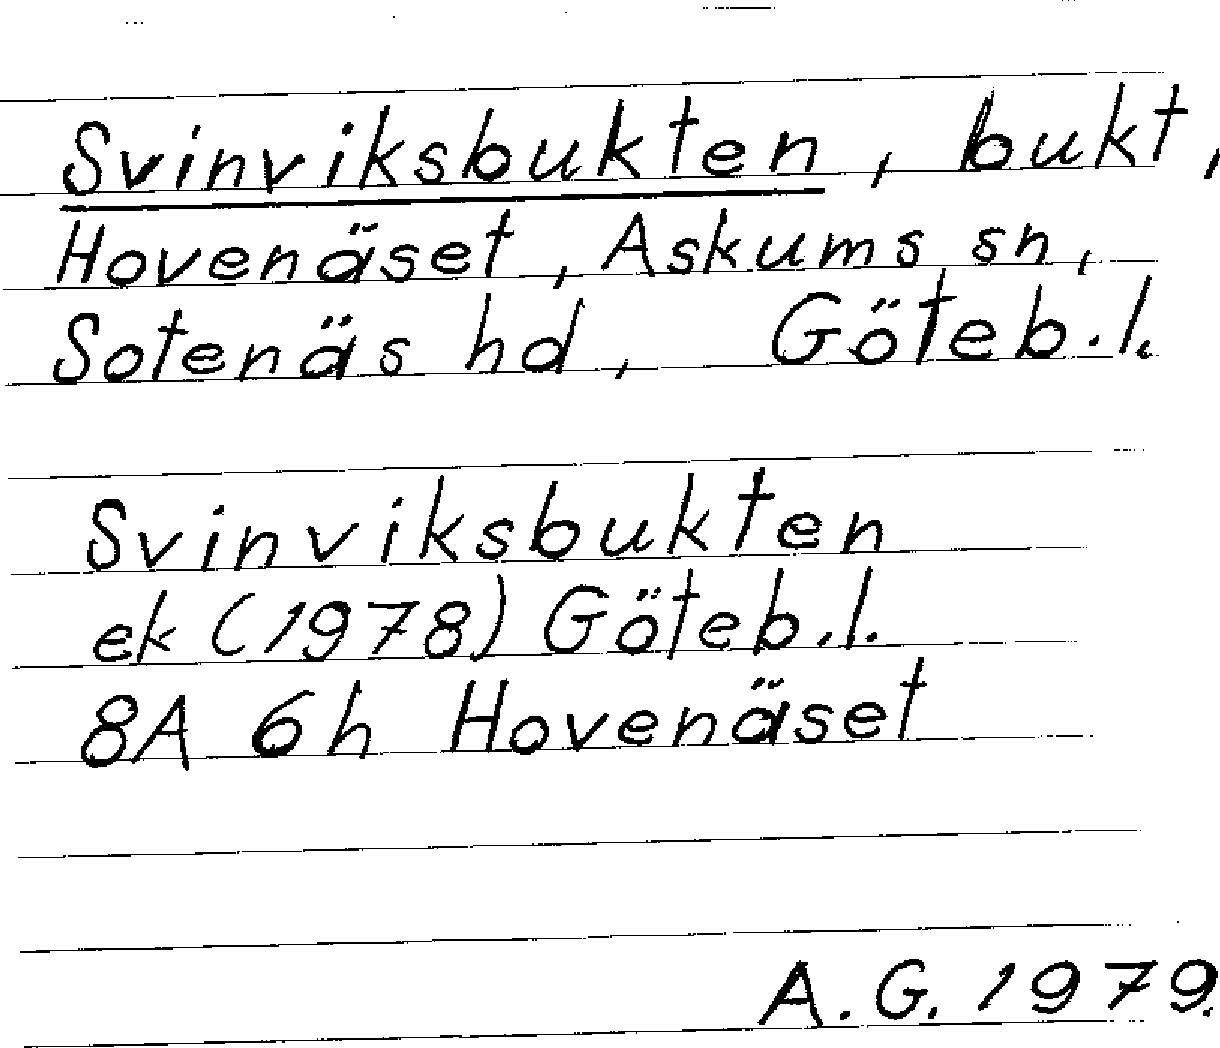 Svinviksbukten, bukt,
Hovenäset, Askums sn,
Sotenäs hd, Göteb.l.
Svinviksbukten
ek (1978) Göteb.l.
8A 6h Hovenäset
A.G. 1979.